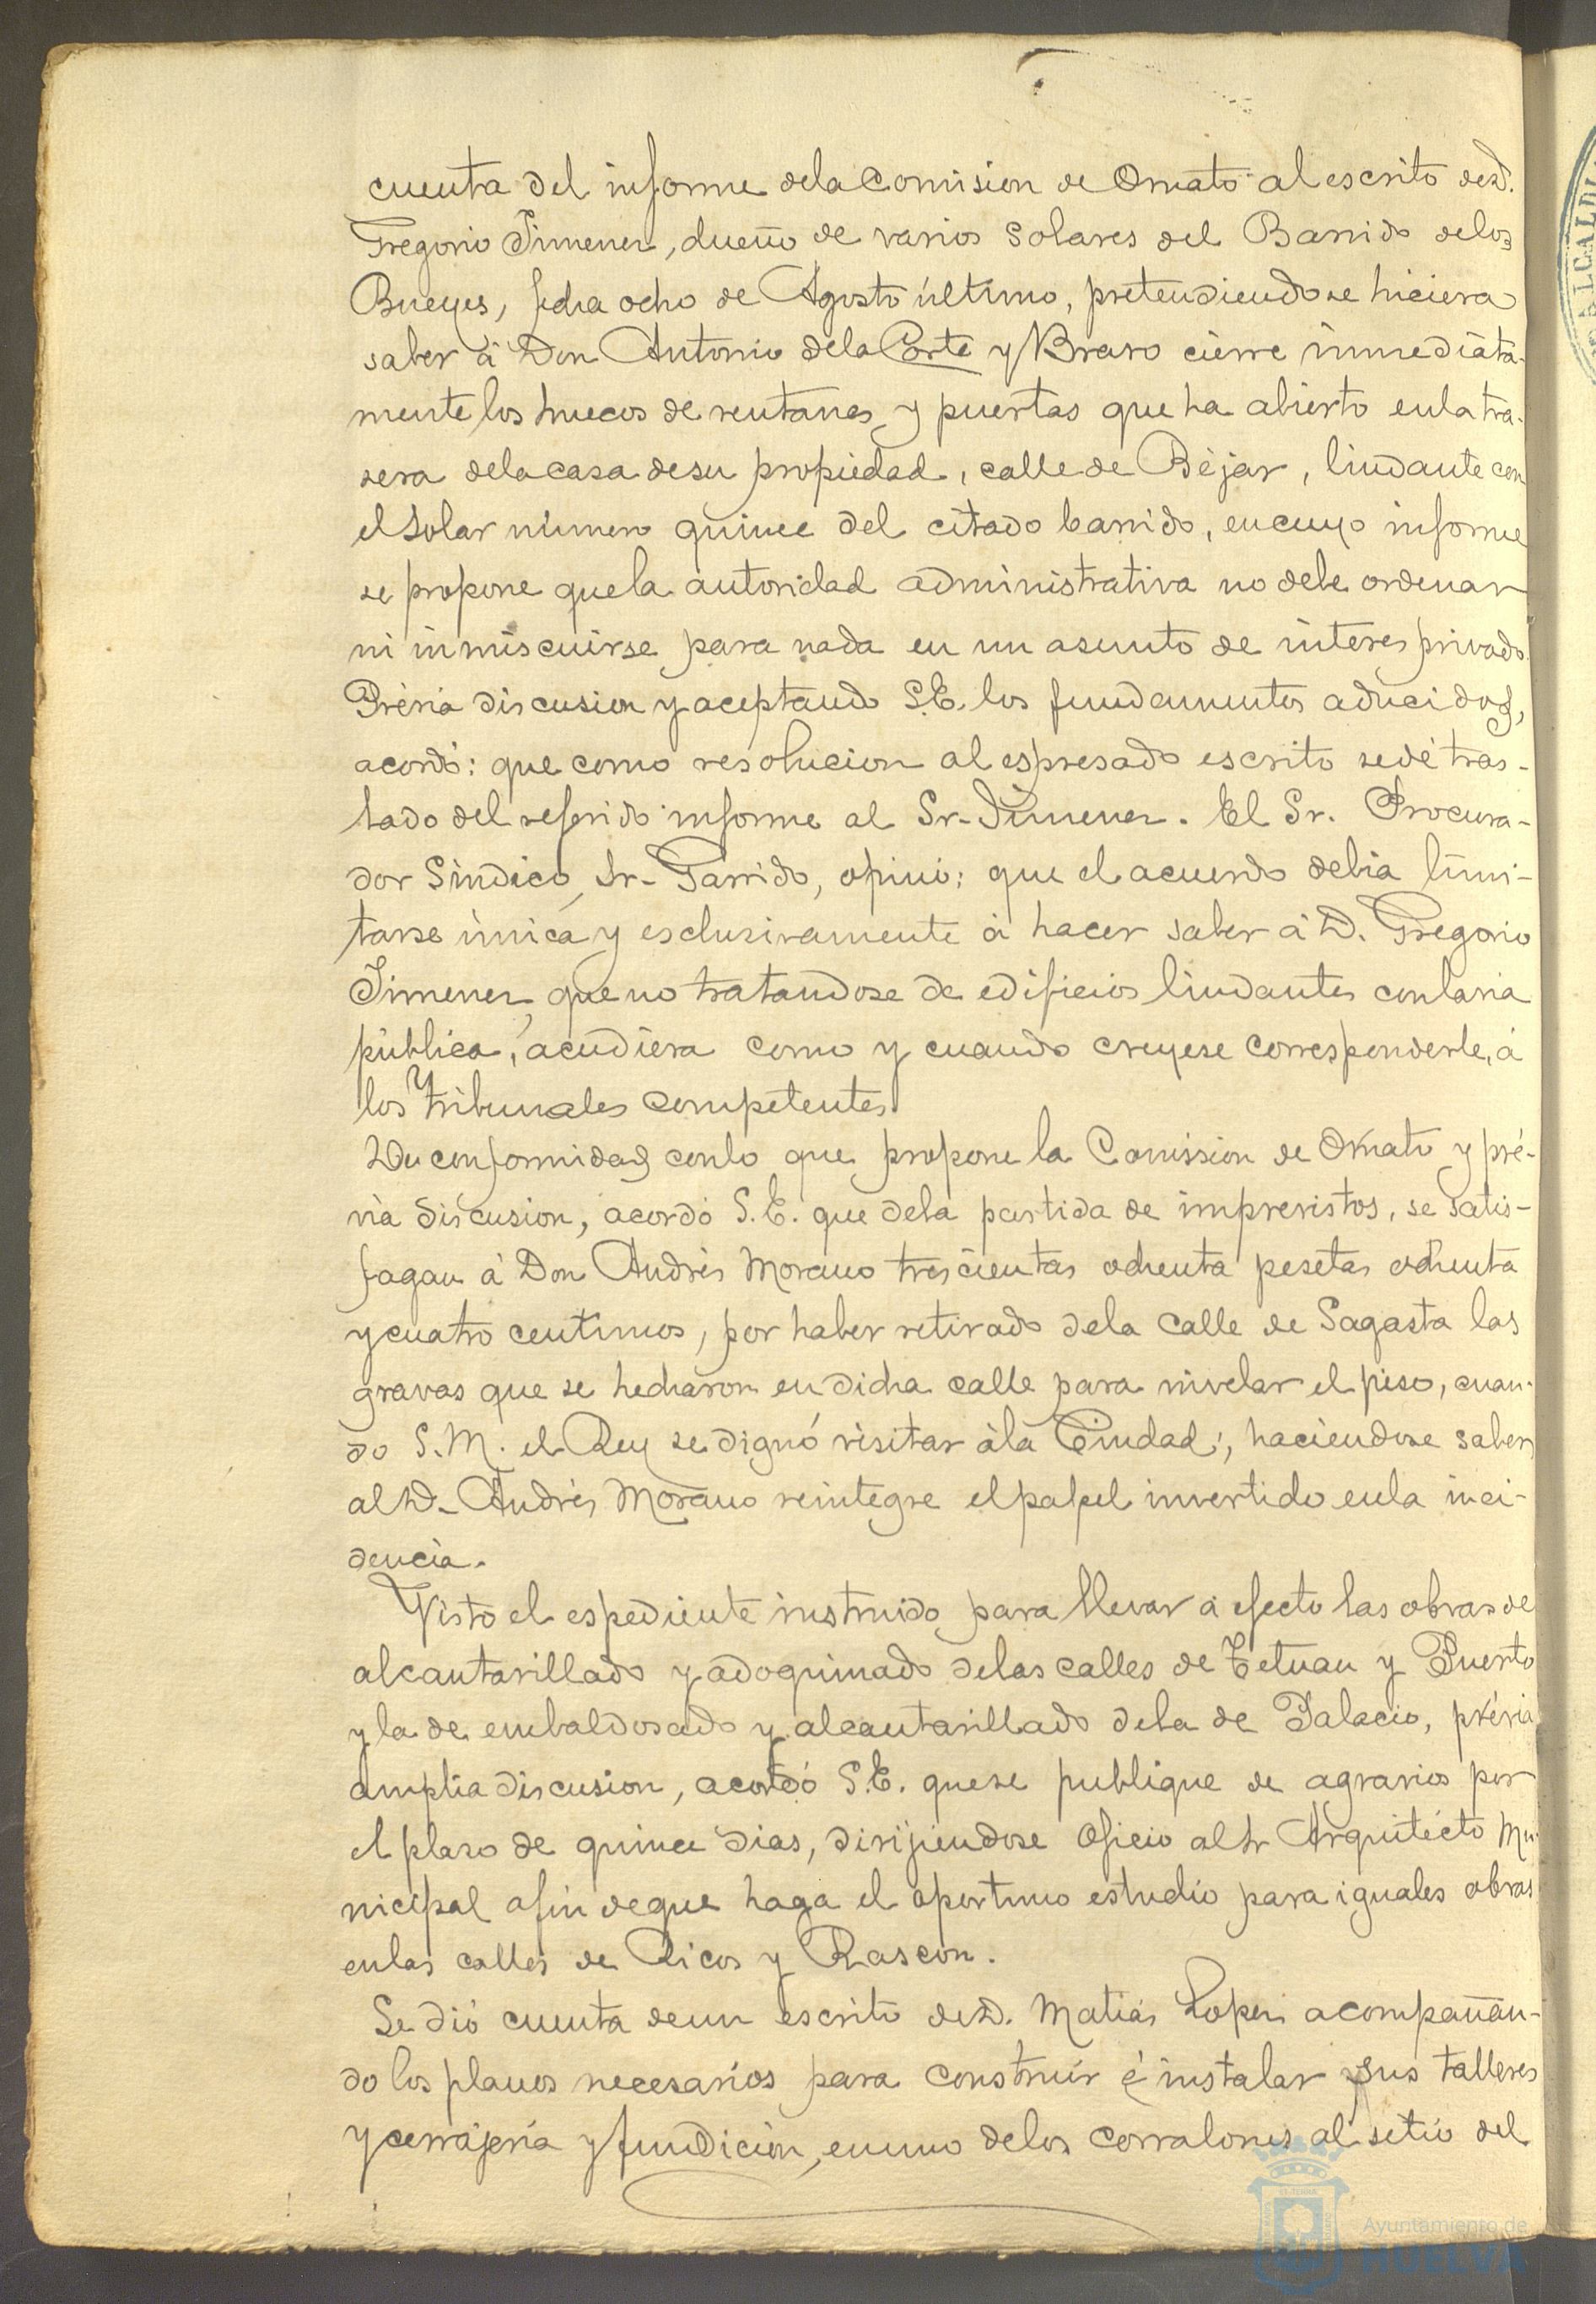 cuenta del informe dela Comision de Ornato al escrito de D.
Gregorio Jimenez, dueño de varios solares del Barrido delos
Bueyes, fecha ocho de Agosto último, pretendiendose hiciera
saber á Don Antonio dela Corte y Bravo cierre inmediata-
mente los huecos de ventanas y puertas que ha abierto enla tra-
sera dela casa desu propiedad, calle de Béjar, lindante con
el Solar número quince del citado barrido, encuyo informe
se propone quela autoridad administrativa no debe ordenar
ni inmiscuirse para nada en un asunto de interes privado.
Prévia discusion y aceptando S.E. los fundamentos aducidos,
acordó: que como resolucion al espresado escrito sedé tras-
lado del referido informe al Sr. Jimenez. El Sr. Procura-
dor Síndico, Sr. Garrido, opinó: que el acuerdo debia limi-
tarse única y esclusivamente á hacer saber á D. Gregorio
Jimenez, que no tratandose de edificios lindantes conlavia
pública, acudiera como y cuando creyese corresponderle, á
los Tribunales competentes.
De conformidad conlo que propone la Comission de Ornato y pré-
via discusion, acordó S.E. que dela partida de imprevistos, se satis-
fagan á Don Andrés Morano trescientas ochenta pesetas ochenta
y cuatro centimos, por haber retirado dela calle de Sagasta las
gravas que se hecharon en dicha calle para nivelar el piso, cuan-
do S.M. el Rey se dignó visitar ála Ciudad; haciendose saber
al D. Andrés Morano reintegre el papel invertido enla inci-
dencia.
Visto el espediente instruido para llevar á efecto las obras de
alcantarillado y adoquinado delas calles de Tetuan y Puerto
y la de embaldosado y alcantarillado dela de Palacio, prévia
amplia discusion, acordó S.E. quese publique de agravios por
el plazo de quince dias, dirijiendose oficio al Sr Arquitécto Mu-
nicipal afin deque haga el oportuno estudio para iguales obras
enlas calles de Ricos y Rascon.
Se dió cuenta deun escrito de D. Matias Lopez acompañan-
do los planos necesarios para construir é instalar sus talleres
y cerrajeria y fundicion, enuno delos corralones al sitio del
ALCALDI
Ayuntamiento de
HUELVA